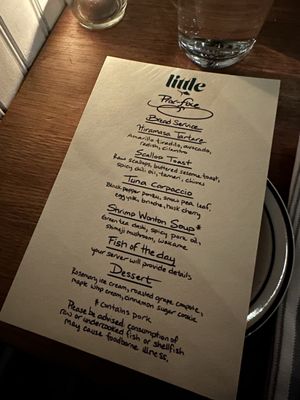 little
Prix-fixe
Bread Service
Hiramasa Tartare
Amarillo tiradito, avocado,
radish, cilantro
Scallop Toast
Raw scallops, buttered sesame toast,
spicy chili oil, tamari, chives
Tuna Carpaccio
Black pepper ponzu, snow pea leaf,
egg yolk, brioche, husk cherry
Shrimp Wonton Soup*
Green tea dashi, spicy pork oil,
shimeji mushroom, wakame
Fish of the day
your server will provide details
Dessert
Rosemary ice cream, roasted grape compote,
maple whip cream, cinnamon sugar cookie
* contains pork
Please be advised consumption of
raw or undercooked fish or shellfish
may cause foodborne illness.